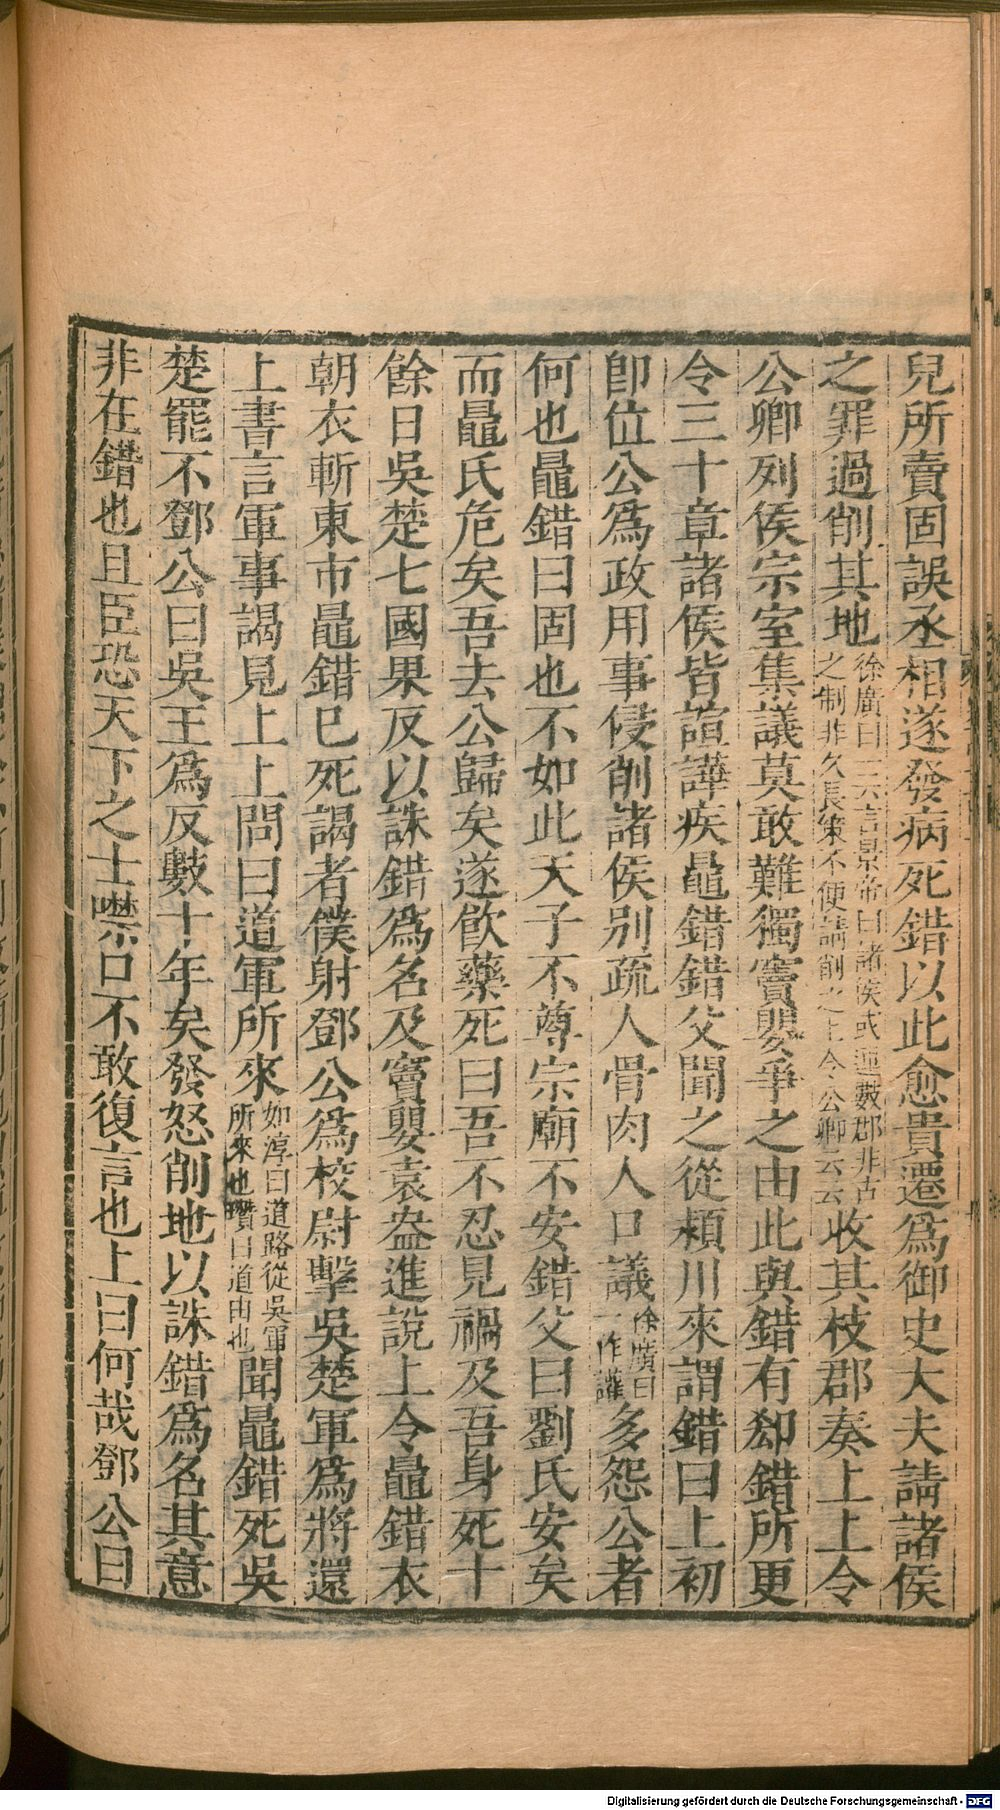 兒所賣固誤丞相遂發病死錯以此愈貴遷爲御史大夫請諸侯
之罪過削其地徐廣曰一云言景帝曰諸侯或連數郡非古之制非久長策不便請削之上令公卿云云收其枝郡奏上上令
公卿列侯宗室集議莫敢難獨竇嬰爭之由此與錯有郤錯所更
令三十章諸侯皆諠譁疾鼂錯錯父聞之從潁川來謂錯曰上初
卽位公爲政用事侵削諸侯别疏人骨肉人口議徐廣曰一作讓多怨公者
何也鼂錯曰固也不如此天子不尊宗廟不安錯父曰劉氏安矣
而鼂氏危矣吾去公歸矣遂飮藥死曰吾不忍見禍及吾身死十
餘日吳楚七國果反以誅錯爲名及竇嬰袁盎進說上令鼂錯衣
朝衣斬東市鼂錯已死謁者僕射鄧公爲校尉擊吳楚軍爲將還
上書言軍事謁見上上問曰道軍所來如淳曰道路從吳軍所來也瓚曰道由也聞鼂錯死吳
楚罷不鄧公曰吳王爲反數十年矣發怒削地以誅錯爲名其意
非在錯也且臣恐天下之士噤口不敢復言也上曰何哉鄧公曰
Digitalisierung gefördert durch die Deutsche Forschungsgemeinschaft - DFG